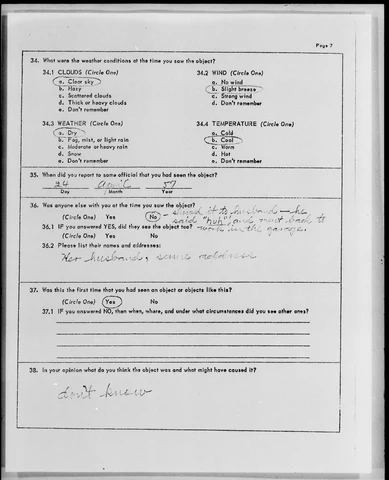 Page 7
34. What were the weather conditions at the time you saw the object?
34.1 CLOUDS (Circle One) 34.2 WIND (Circle One)
a. Clear sky a. No wind
b. Hazy b. Slight breeze
c. Scattered clouds c. Strong wind
d. Thick or heavy clouds d. Don't remember
e. Don't remember
34.3 WEATHER (Circle One) 34.4 TEMPERATURE (Circle One)
a. Dry a. Cold
b. Fog, mist, or light rain b. Cool
c. Moderate or heavy rain c. Warm
d. Snow d. Hot
e. Don't remember e. Don't remember
35. When did you report to some official that you had seen the object?
24 April 57
Day Month Year
36. Was anyone else with you at the time you saw the object?
(Circle One) Yes No - showed it to husband - he
said "huh" and went back to
36.1 IF you answered YES, did they see the object too? work in the garage.
(Circle One) Yes No
36.2 Please list their names and addresses:
Her husband, same address
37. Was this the first time that you had seen an object or objects like this?
(Circle One) Yes No
37.1 IF you answered NO, then when, where, and under what circumstances did you see other ones?
38. In your opinion what do you think the object was and what might have caused it?
don't know